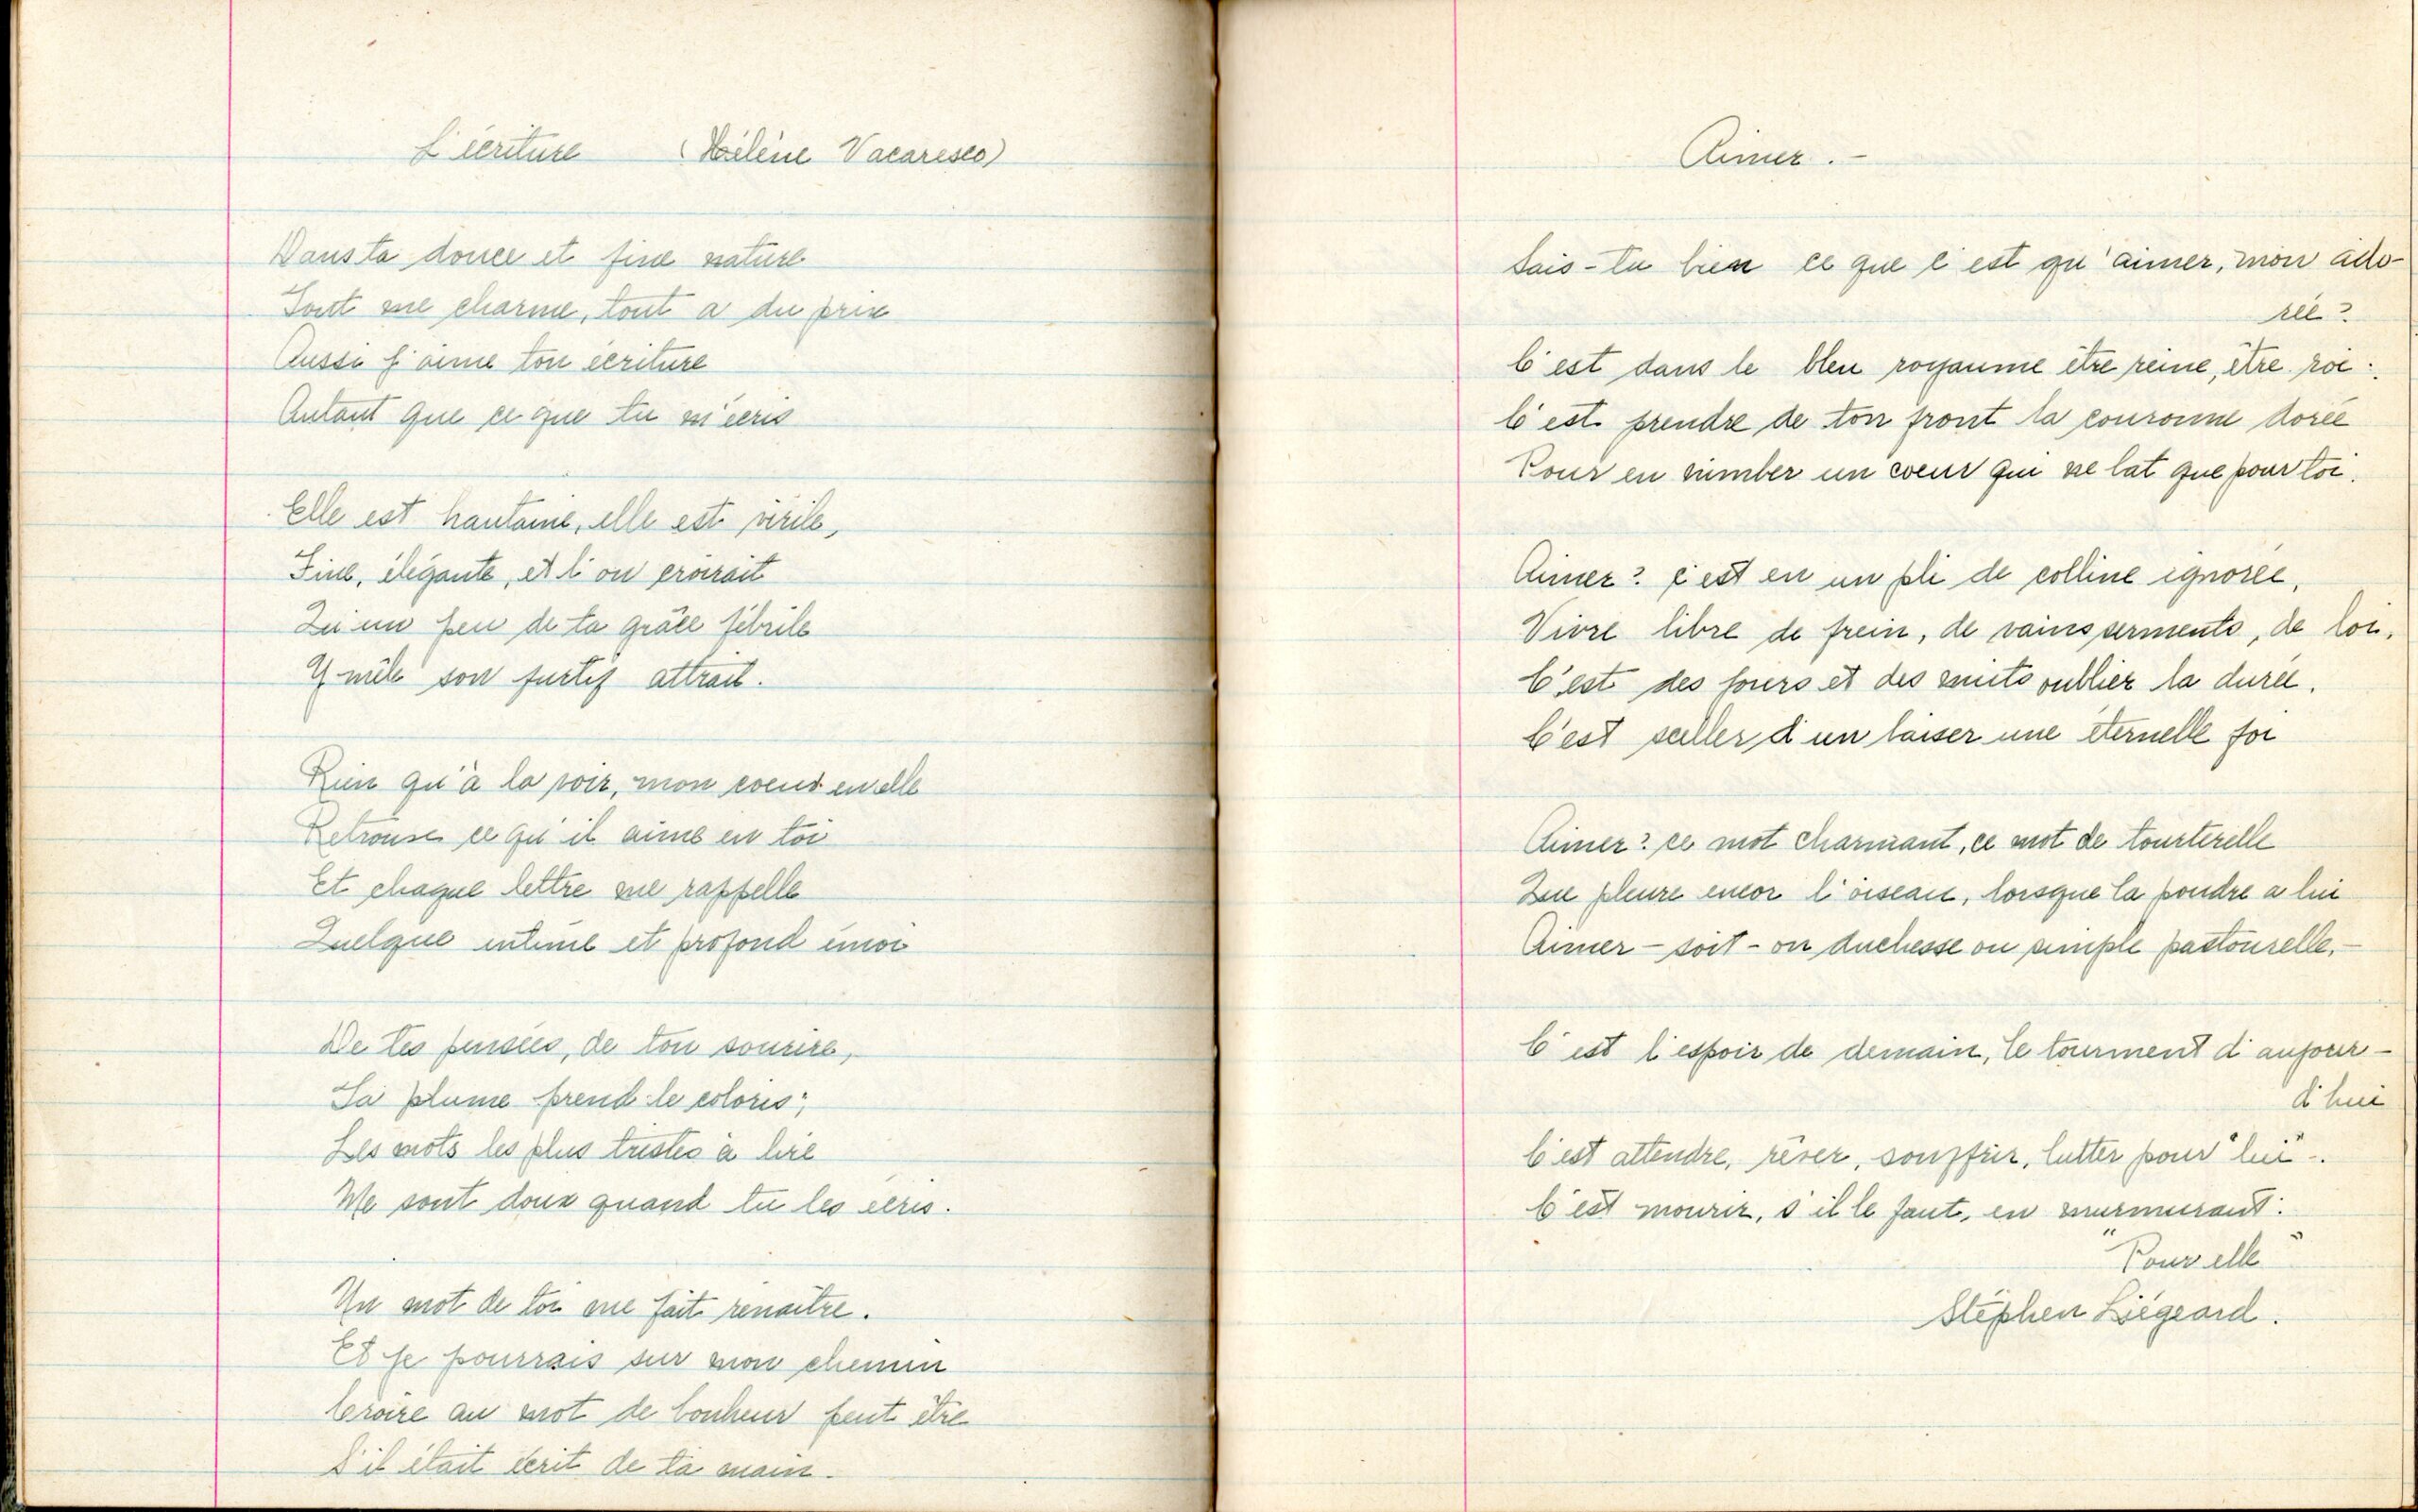 L'écriture (Hélène Vacaresco)
Dans ta douce et fine nature
Tout me charme, tout a du prix
Aussi j'aime ton écriture
Autant que ce que tu m'écris
Elle est hautaine, elle est virile,
Fine, élégante, et l'on croirait
Qu'un peu de ta grâce fébrile
Y mêle son furtif attrait.
Rien qu'à la voir, mon coeur en elle
Retrouve ce qu'il aime en toi
Et chaque lettre me rappelle
Quelque intime et profond émoi
De tes pensées, de ton sourire,
Ta plume prend le coloris;
Les mots les plus tristes à lire
Me sont doux quand tu les écris.
Un mot de toi me fait renaître.
Et je pourrais sur mon chemin
Croire au mot de bonheur peut être
S'il était écrit de ta main.
Aimer.-
Sais-tu bien ce que c'est qu'aimer, mon ado-
rée?
C'est dans le bleu royaume être reine, être roi:
C'est prendre de ton front la couronne dorée
Pour en nimber un coeur qui ne bat que pour toi.
Aimer? c'est en un pli de colline ignorée,
Vivre libre de frein, de vains serments, de loi.
C'est des jours et des nuits oublier la durée.
C'est sceller d'un baiser une éternelle foi
Aimer? ce mot charmant, ce mot de tourterelle
Que pleure encor l'oiseau, lorsque la poudre a lui
Aimer - soit-on duchesse ou simple pastourelle.-
C'est l'espoir de demain, le tourment d'aujour-
d'hui
C'est attendre, rêver, souffrir, lutter pour "lui".
C'est mourir, s'il le faut, en murmurant:
"Pour elle"
Stéphen Liégeard.